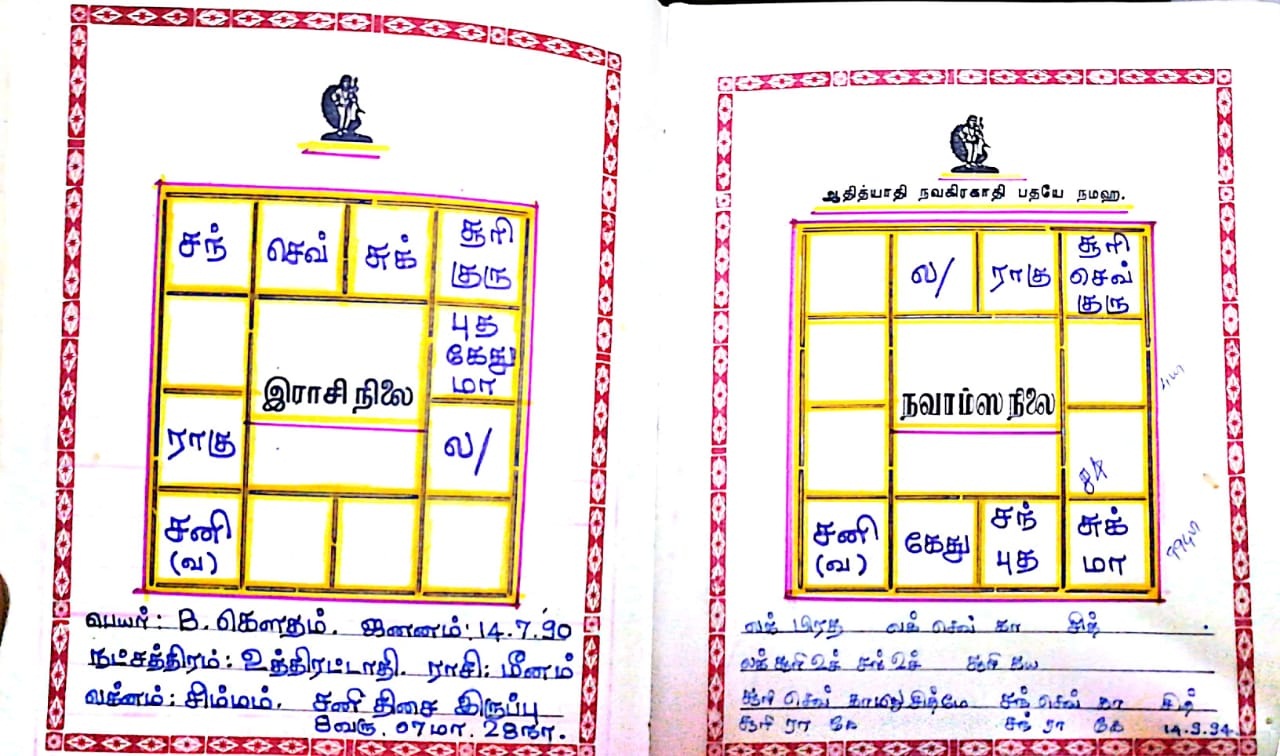 சந்
செவ்
சுக்
சூரி
குரு
புத
கேது
மா
இராசி நிலை
ராகு
ல/
சனி
(வ)
பெயர்: B. கௌதம். ஜனனம்: 14.7.'90
நட்சத்திரம்: உத்திரட்டாதி. ராசி: மீனம்
லக்னம்: சிம்மம். சனி திசை இருப்பு
8வரு. 07மா. 28நா.
ஆதித்யாதி நவகிரகாதி பதயே நமஹ.
ல/
ராகு
சூரி
செவ்
குரு
நவாம்ஸ நிலை
சனி
(வ)
கேது
சந்
புத
சுக்
மா
லக் செவ் கா
சூரி செவ் சந் செவ் கா
சூரி ரா கே சந் ரா கே 14.9.94